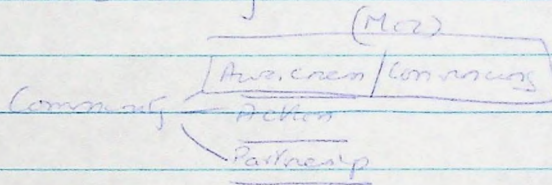 (Moz)
Awareness / Convincing
Community
Action
Partnership